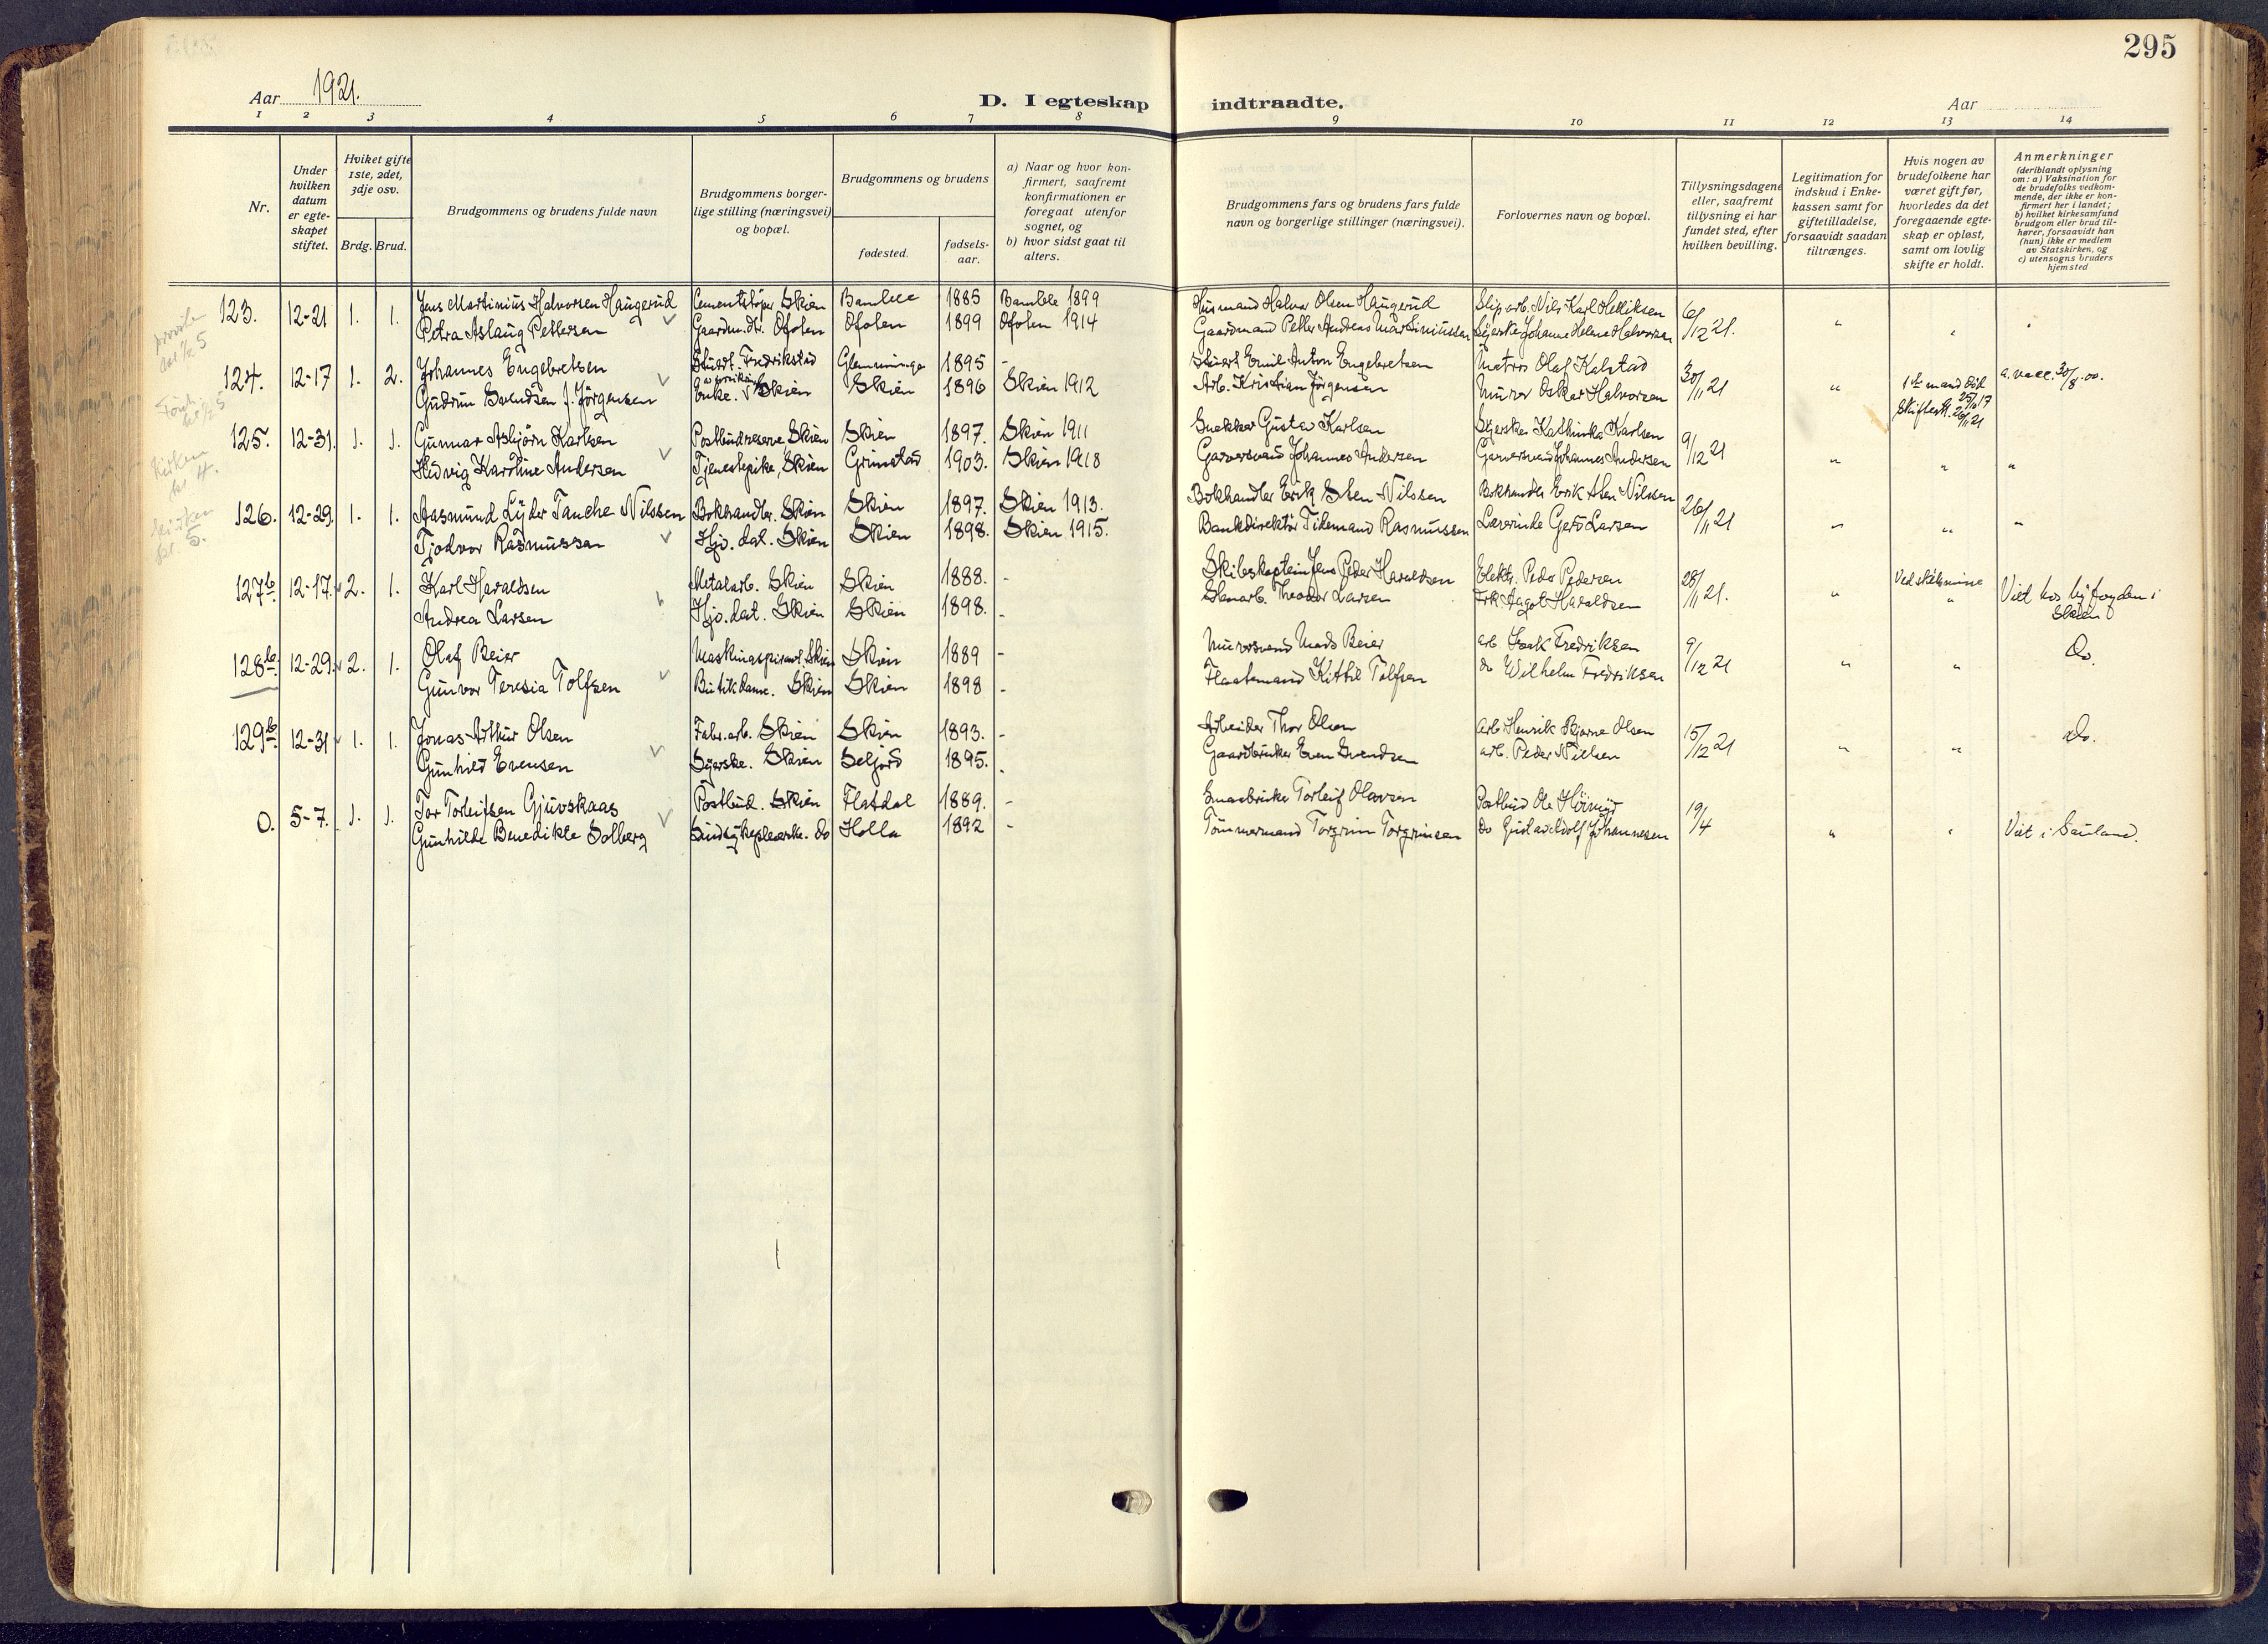 295
Aar 1921.
D. I egteskap indtraadte.
Aar
1 2 3 4 5 6 7 8 9 10 11 12 13 14
Nr.
Under hvilken datum er egteskapet stiftet.
Hviket gifte 1ste, 2det, 3dje osv.
Brdg. Brud.
Brudgommens og brudens fulde navn
Brudgommens borgerlige stilling (næringsvei) og bopæl.
Brudgommens og brudens
fødested.
fødselsaar.
a) Naar og hvor konfirmert, saafremt konfirmationen er foregaat utenfor sognet, og
b) hvor sidst gaat til alters.
Brudgommens fars og brudens fars fulde navn og borgerlige stillinger (næringsvei).
Forlovernes navn og bopæl.
Tillysningsdagene eller, saafremt tillysning ei har fundet sted, efter hvilken bevilling.
Legitimation for indskud i Enkekassen samt for giftetilladelse, forsaavidt saadan tiltrænges.
Hvis nogen av brudefolkene har været gift før, hvorledes da det foregaaende egteskap er opløst, samt om lovlig skifte er holdt.
Anmerkninger (deriblandt oplysning om: a) Vaksination for de brudefolks vedkommende, der ikke er konfirmert her i landet; b) hvilket kirkesamfund brudgom eller brud tilhører, forsaavidt han (hun) ikke er medlem av Statskirken, og c) utensogns bruders hjemsted
123. 12-21 1. 1. Jens Martinius Halvorsen Haugerud Cementstøper Skien Bamble 1885 Bamble 1899 Husmand Halvor Olsen Haugerud Sliparb. Nils Karl Helliksen 6/12 21.
Petra Aslaug Pettersen Gaardm.dtr. Ofoten Ofoten 1899 Ofoten 1914 Gaardmand Petter Andreas Martiniussen Syerske Johanne Helene Halvorsen " " "
124. 12-17 1. 2. Johannes Engebretsen Fredrikstad Glemminge 1895 - Emil Anton Engebretsen Matros Olaf Kalstad 30/11 21
Gudrun Svendsen f. Jörgensen Enke. Skien Skien 1896 Skien 1912 Arb. Kristian Jörgensen Murer Oskar Halvorsen " 1ste mand död 25/6 17 Skifteatt. 26/11 21 a. vacc. 30/8.00.
125. 12-31. 1. 1. Gunnar Asbjörn Karlsen Postbudreserve Skien Skien 1897. Skien 1911 Snekker Gustav Karlsen Syerske Kathinka Karlsen 9/12 21
Hedvig Karoline Andersen Tjenestepike, Skien Grimstad 1903. Skien 1918 Garversvend Johannes Andersen Garversvend Johannes Andersen " " "
126. 12-29. 1. 1. Aasmund Lyder Tanche Nilssen Bokhandler. Skien Skien 1897. Skien 1913. Bokhandler Erik Sten-Nilssen Bokhandler Erik Sten Nilssen 26/11 21
Tjodvor Rasmussen Hjv. dat. Skien Skien 1898. Skien 1915. Bankdirektör Tidemand Rasmussen Lærerinde Gerd Larsen " " "
127b. 12-17. 2. 1. Karl Haraldsen Metalarb. Skien Skien 1888. - Skibskaptein Jens Peder Haraldsen Elektr. Peder Pedersen 28/11 21. Ved skilsmisse
Andrea Larsen Hjv. dat. Skien Skien 1898. - Theodor Larsen Frk. Aagot Haraldsen " " Viet hos byfogden i Skien
128b. 12-29. 2. 1. Olaf Beier Skien Skien 1889 - Murersvend Mads Beier arb. Isak Fredriksen 9/12 21 Do.
Gunvor Teresia Tolfsen Butikdame. Skien Skien 1898 - Flaatemand Kittil Tolfsen do Wilhelm Fredriksen " "
129b. 12-31 1. 1. Jonas Arthur Olsen Fabr.arb. Skien Skien 1893. - Arbeider Thor Olsen arb Henrik Bjarne Olsen 15/12 21 do.
Gunhild Evensen Syerske. Skien Seljord 1895. - Gaardbruker Even Svendsen arb. Peder Nielsen " "
0. 5-7. 1. 1. Tor Torleifsen Gjuvskaas Postbud. Skien Flatdal 1889. - Smaabruker Torleif Olavsen Postbud Ole 19/4
Gunhilde Benedikte Solberg do Holla 1892 - Tömmermand Torgrim Torgrimsen Do Gustav Adolf Johannesen " " Viet i Sauland.